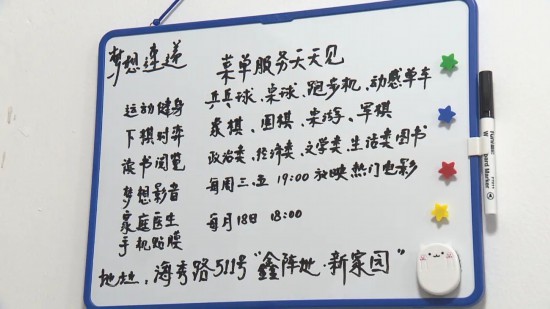 梦想速递
菜单服务天天见
运动健身 乒乓球、桌球、跑步机、动感单车
下棋对弈 象棋、围棋、桌游、军棋
读书阅览 政治类、经济类、文学类、生活类图书
梦想影音 每周三、五 19:00 放映热门电影
家庭医生 每月18日 18:00
手机贴膜
地址：海秀路511号"鑫阵地·新家园"